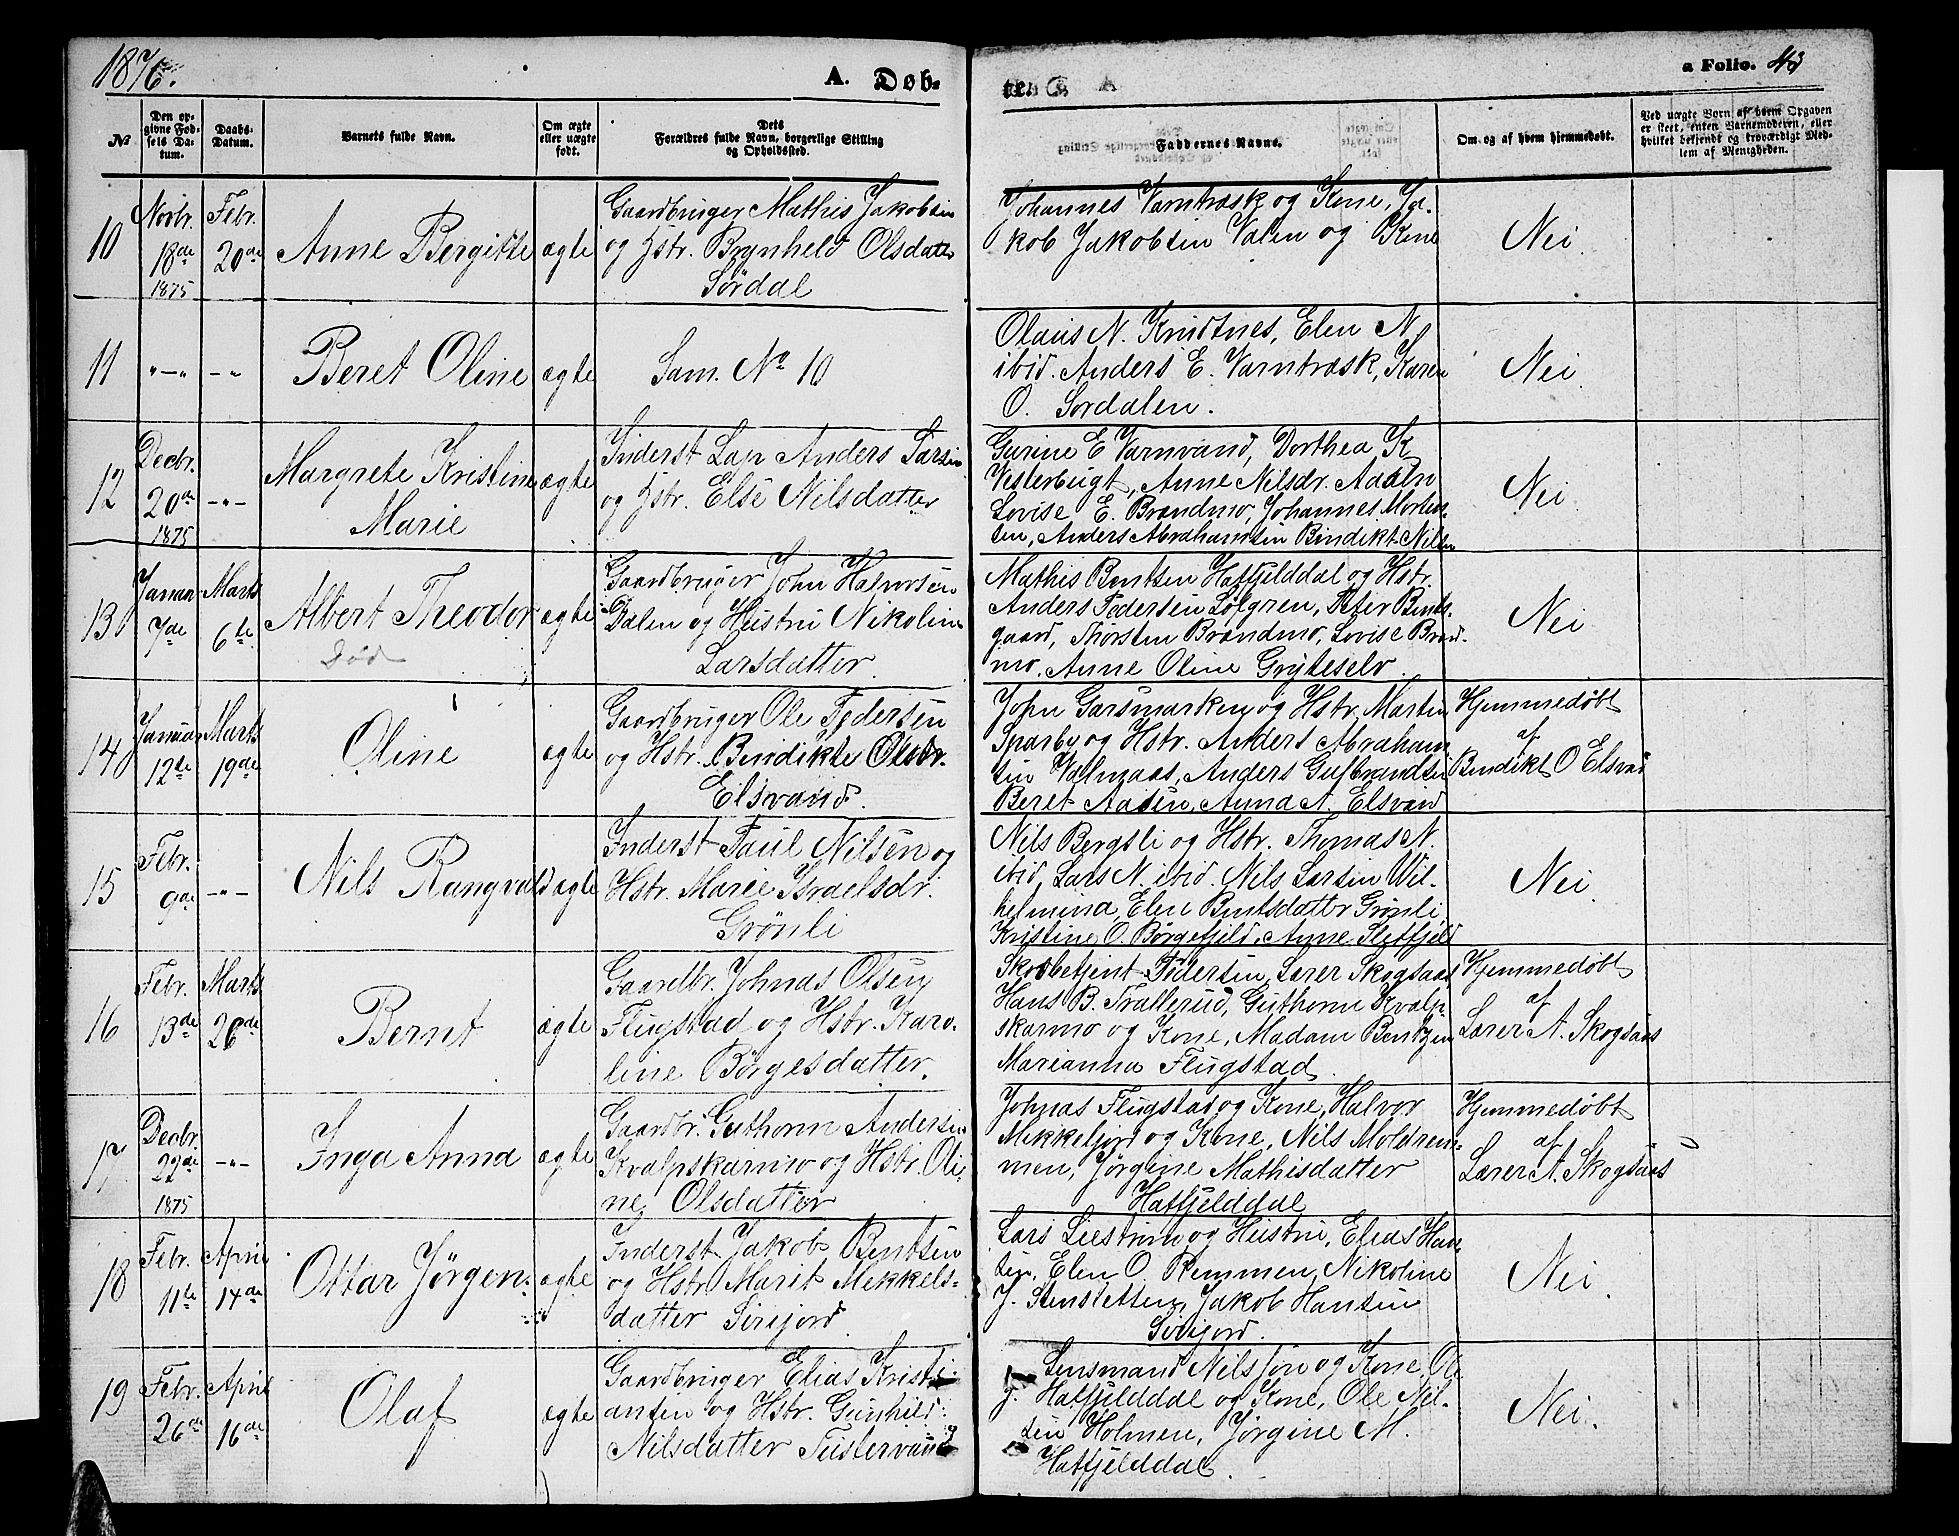 1876.
A. Døb-
te.
a Folio. 43
№
Den op-
givne Fød-
sels Da-
tum.
Daabs-
Datum.
Barnets fulde Navn.
Om ægte
eller uægte
født.
Dets
Forældres fulde Navn, borgerlige Stilling
og Opholdssted.
Faddernes Navne.
Om og af hvem hjemmedøbt.
Ved uægte Born af hvem Opgaven
er skeet, enten Barnemoderen, eller
hvilket bekjendt og troværdigt Med-
lem af Menigheden.
10
Novbr.
18de
1875
Febr.
20de
Anne Bergitte
ægte
Gaardbruger Mathis Jakobsen
og Hstr. Brynheld Olsdatter
Sørdal
Johannes Varntræsk og Kone, Ja-
kob Jakobsen Valen og Kone
Nei.
11
"—"
-"
Beret Oline
ægte
Sam. No 10
Olaus N. Knudtnes, Elen N
ibid. Anders E. Varntræsk, Karen
O. Sørdalen.
Nei.
12
Decbr.
20de
1875
-"-
Margrete Kristine
Marie
ægte
Inderst Lap Anders Larsen
og Hstr. Else Nilsdatter
Gurine E Varnvand, Dorthea K
Vesterbugt, Anne Nilsdr.
Lovise E. Brandmo, Johannes Morten-
sen, Anders Abrahamsen Bendikt Nilsen
Nei.
13
Januar
7de
Marts
6te
Albert Theodor
Død
ægte
Gaardbruger John Halvorsen
Dalen og Hustru Nikoline
Larsdatter.
Mathis Bentsen Hatfjelddal og Hstr.
Anders Pedersen Løfgren, Peter Bents-
gaard, Thorsten Brandmo, Lovise Brand-
mo, Anne Oline Gryteselv.
Nei
14
Januar
12te
Marts
19de
Oline
ægte
Gaardbruger Ole Pedersen
og Hstr. Bendikte Olsdr.
Elsvand.
John Garsmarken og Hstr. Marten
Sparby og Hstr. Anders Abraham-
sen Valmaas, Anders Gulbrandsen
Beret Aasen, Anna A. Elsvand
Hjemmedøbt
af
Bendikt O Elsvand
15
Febr.
9de
-"-
Nils Rangvald
ægte
Inderst Paul Nilsen og
Hstr. Marie Israelsdr.
Grønli
Nils Bergsli og Hstr. Thomas N.
ibid, Lars N. ibid. Nils Larsen Wil-
helmina, Elen Bentsdatter Grønli,
Kristine O. Børgefjeld, Anne Sletfjeld
Nei.
16
Febr.
13de
Marts
26de
Bernt
ægte
Gaardbr. Johnas Olsen
Flugstad og Hstr. Karo-
line Børgesdatter.
Skovbetjent Pedersen, Lærer Skogsaas
Hans B. Trallerud, Guthorm Kvalp-
skarmo og Kone, Madam Bentzen
Marianna Flugstad.
Hjemmedøbt
af
Lærer A. Skogsaas
17
Decbr.
22de
1875
-"-
Inga Anna
ægte
Gaardbr. Guthorm Andersen
Kvalpskarmo og Hstr. Oli-
ne Olsdatter
Johnas Flugstad og Kone, Halvor
Mikkeljord og Kone, Nils Moldrem-
men, Jørgine Mathisdatter
Hatfjelddal
Hjemmedøbt
af
Lærer A. Skogsaas
18
Febr.
11te
April
14de
Ottar Jørgen.
ægte
Inderst Jakob Bentsen
og Hstr Marit Mikkels-
datter Sørijord.
Lars og Hustru, Elias Han-
sen, Elen O. Remmen, Nikoline
J. Stensletten, Jakob Hansen
Sørijord.
Nei.
19
Febr.
26de
April
16de
Olaf
ægte
Gaardbruger Elias Kristi-
ansen og Hstr. Gunhild
Nilsdatter Tustervand
Lensmand Nilsjon og Kone, Ole
J. Hatfjelddal og Kone, Ole Nil-
sen Holmen, Jørgine M.
Hatfjelddal.
Nei.